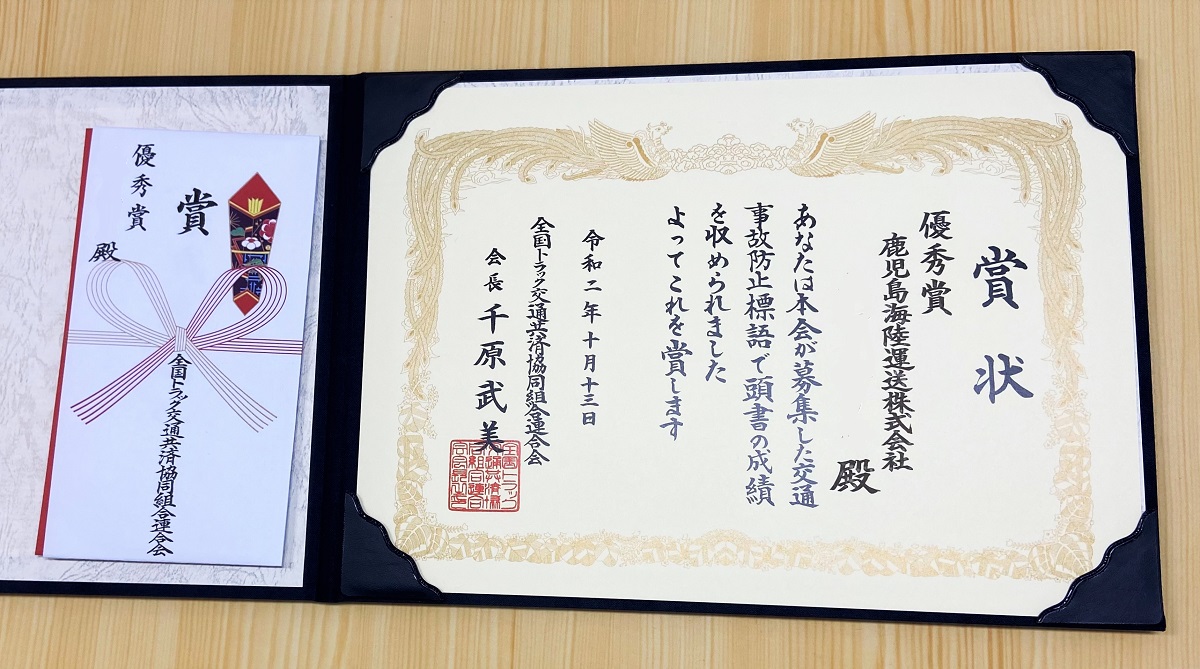 賞状
優秀賞
鹿児島海陸運送株式会社
殿
あなたは本会が募集した交通
事故防止標語で頭書の成績
を収められました
よってこれを賞します
令和二年十月十三日
全国トラック交通共済協同組合連合会
会長 千原武美
賞
優秀賞
殿
全国トラック交通共済協同組合連合会